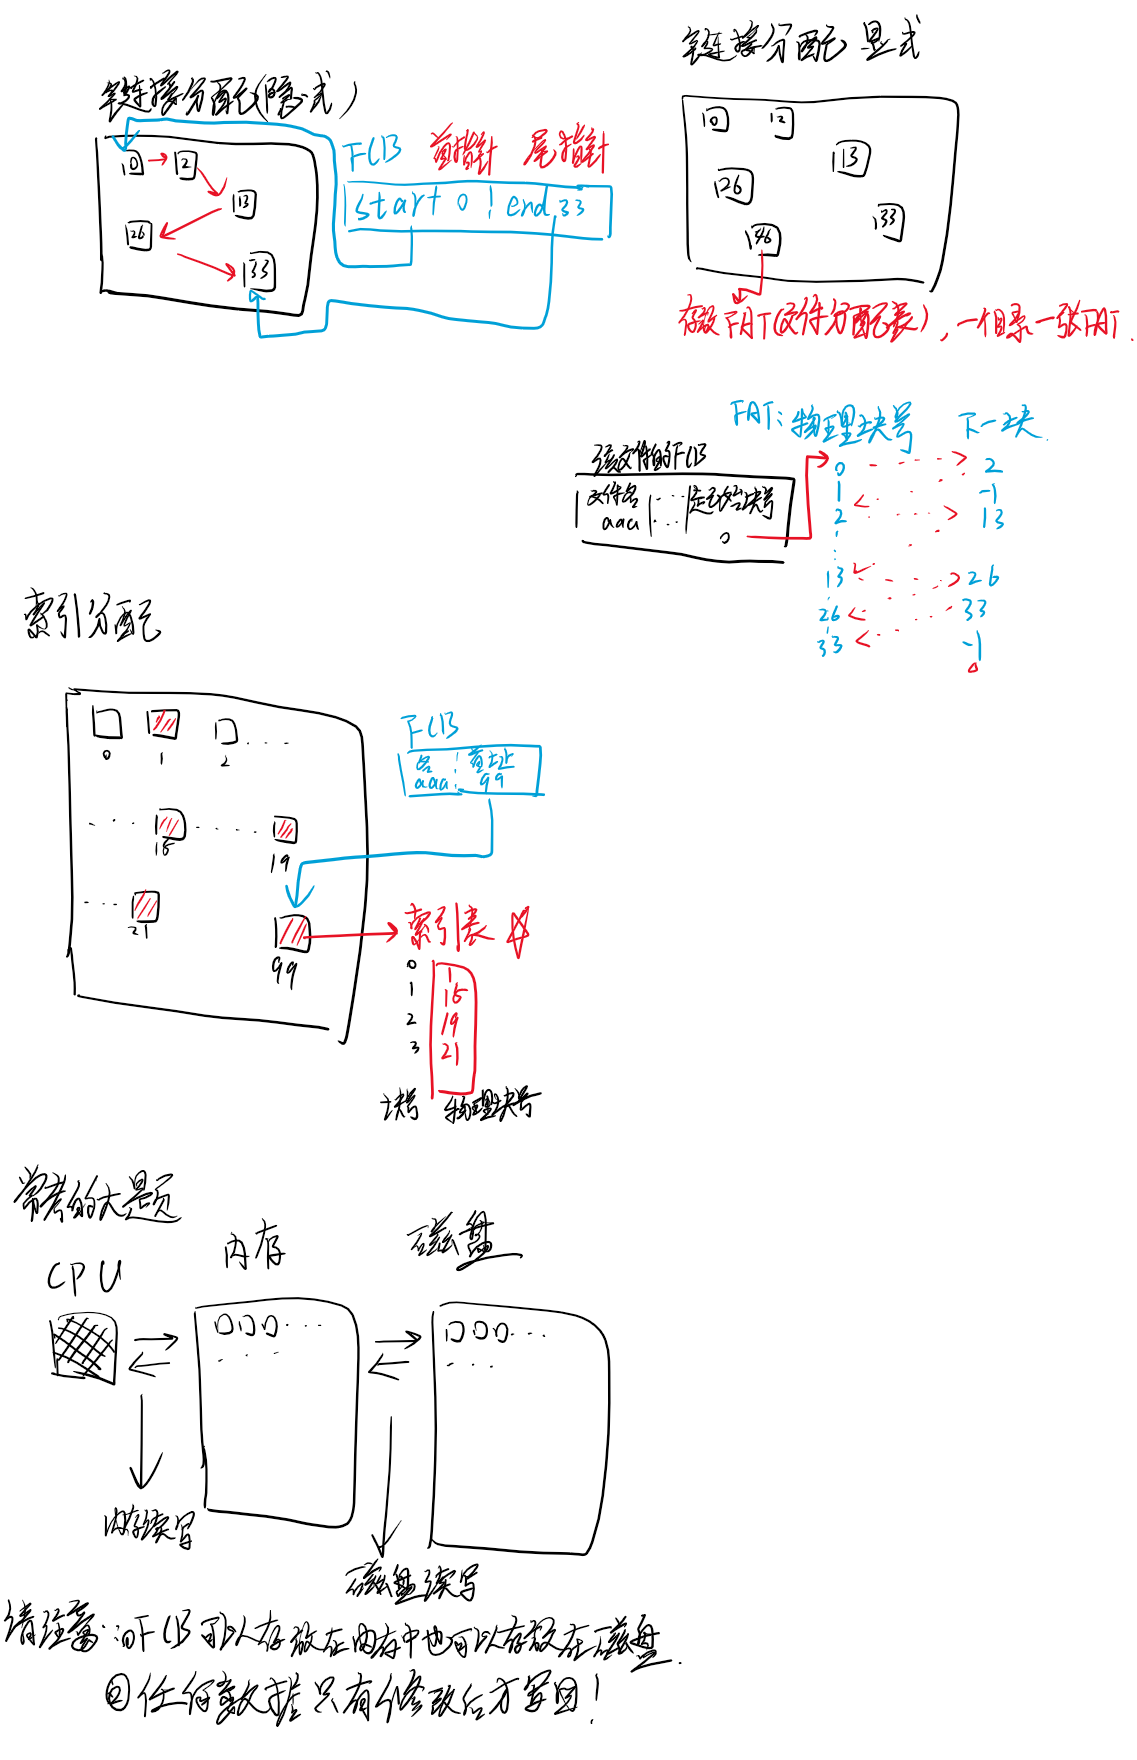 链接分配(隐式)
FCB 首指针 尾指针
start 0 end 33
0 2
13
26
33
链接分配 显式
0 12
113
26
33
46
存放FAT(文件分配表), 一个盘一张FAT.
FAT: 物理块号 下一块
该文件的FCB
文件名 ... 起始块号
aaa ... 0
0 2
1 -1
2 13
13 26
26 33
33 -1
索引分配
0 1 2 ....
15 19
21
99
FCB
名 首址
aaa 99
索引表
0 1
1 15
2 19
3 21
块号 物理块号
常考的大题
CPU 内存 磁盘
内存读写
磁盘读写
请注意: ①FCB可以存放在内存中也可以存放在磁盘.
②任何数据只有修改后才写回!